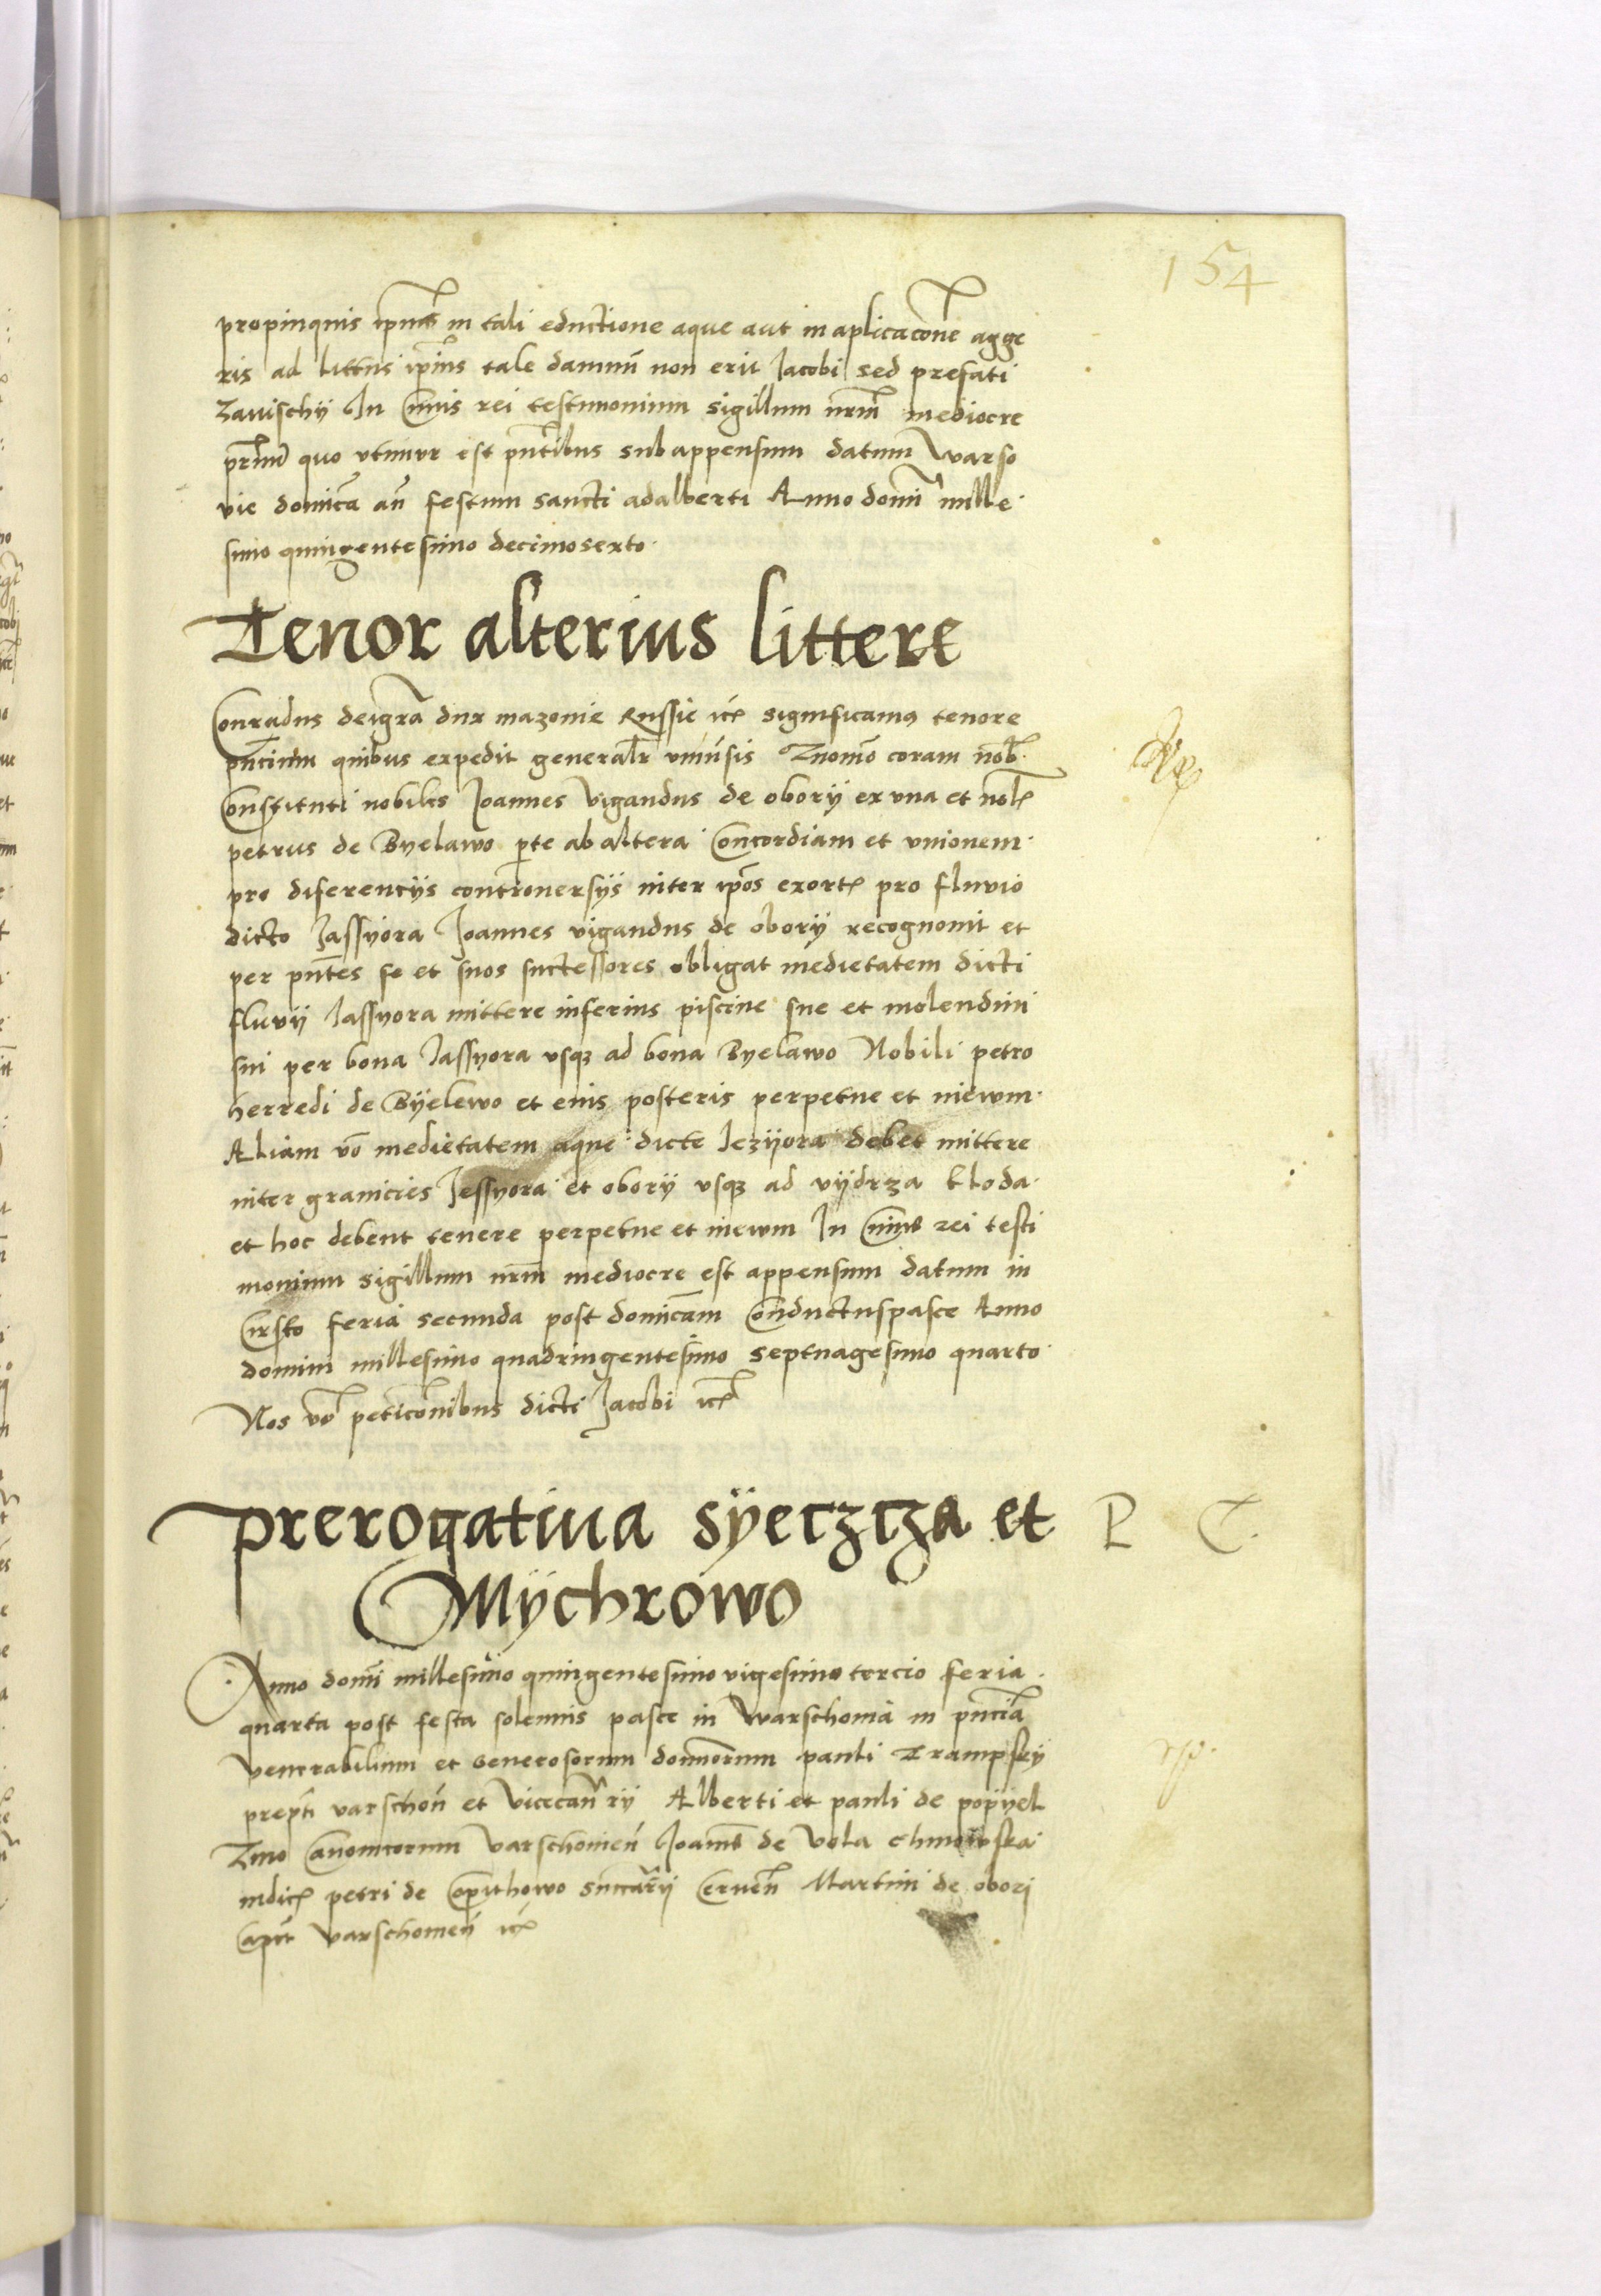 154
propinquis ipius in tali eductione aque aut in aplicacone agge
ris ad littus ipius tale damnu non erit Jacobi sed prefati
Zavischy In Cuius rei testimonium sigillum nrm mediocre
quo utimur est pntibus subappensum datum Warso
vie domica an festum sancti adalberti Anno domi mille
simo quingentesimo decimosexto
Tenor alterius littere
Conradus deigra dux mazovie Russie etc significamus tenore
pncium quibus expedit generalr univsis Quomo coram nob
Constituti nobiles Joannes Vigandus de obory ex una et nobl
petrus de Byelawo pte ab altera Concordiam et unionem
pro diferencys controversys inter ipos exort pro fluvio
dicto Jassyora Joannes vigandus de obory recognovit et
per pntes se et suos suctessores obligat medietatem dicti
fluvy Jassyora mittere inferius piscine sue et molendini
sui per bona Jassyora usq ad bona Byelawo Nobili petro
herredi de Byelewo et euis posteris perpetue et inewm
Aliam vo medietatem aque dicte Jezyora debet mittere
inter granicies Jessyora et obory usq ad vydrza kloda
et hoc debent tenere perpetue et inewm In Cuius rei testi
monium sigillum nrm mediocre est appensum datum in
Cirsko feria secunda post domicam Conductuspasce Anno
domini millesimo quadringentesimo septuagesimo quarto
Nos vo peticonibus dicti Jacobi etc
Prerogativa Syeczcza et P C
Mychrowo
Anno domi millesimo quingentesimo vigesimo tercio feria
quarta post festa solennis pasce in Warschovia in pncia
Venerabilium et generosorum domorum pauli Trampsky
prepti varschon et Vicecanry Alberti et pauli de popyel
Zino Canonicorum Varschovien Joanis de Vola chinowska
indic petri de Copithowo succary Cernen Martini de obori
Capit varschovien etc